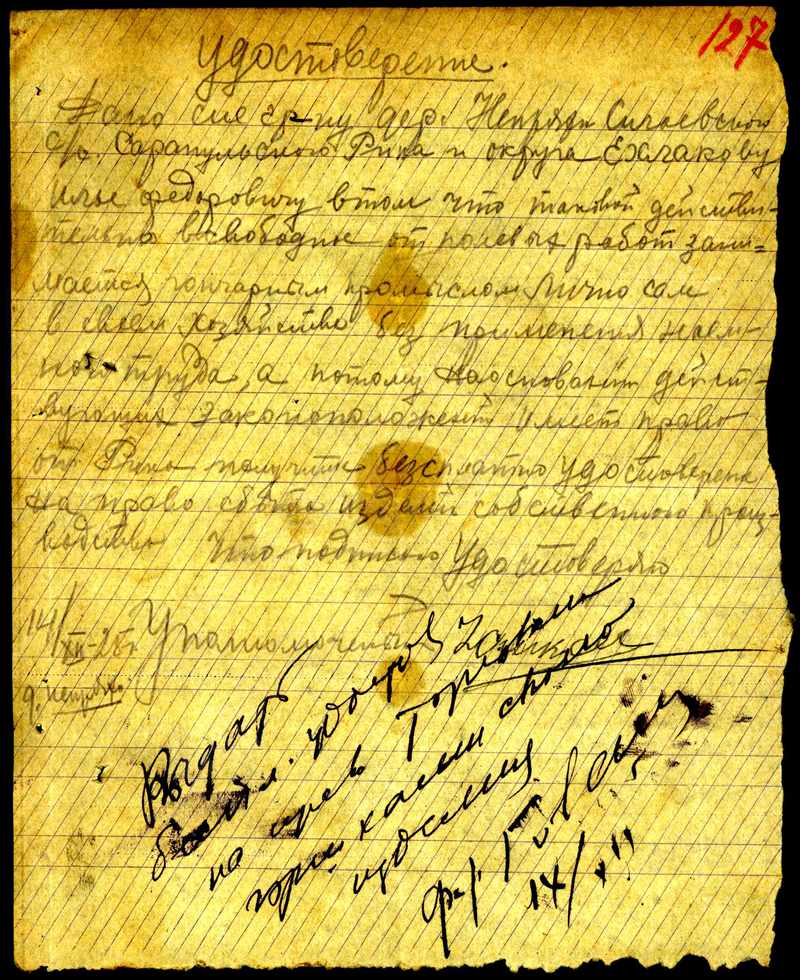 127
Удостоверение.
Дано сие гр-ну дер. Непряхи Сигаевского
с/с. Сарапульского Рика и округа Ехлакову
Илье Федоровичу в том что таковой действи-
тельно в свободные от полевых работ зани-
мается гончарным промыслом лично сам
в своем хозяйстве без применения наем-
ного труда, а потому на основании действ-
вующих законоположений имеет право
от Рика получить бесплатно удостоверение
на право сбыта изделий собственного произ-
водства что подписью удостоверяю
14/XII-28г. Уполномоченный
д. Непряхи
Выдать
беспл. удостов
на прав торговли
изделия
14/XII